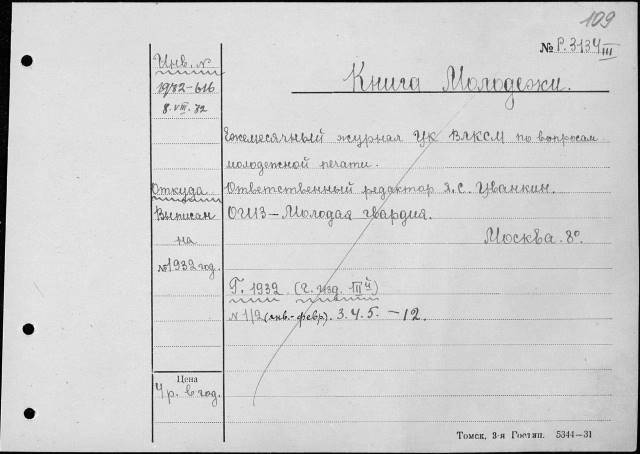 109
№ Р.3134 III
Книга Молодежи.
Инв. №
1932-616
8.VIII.32
Ежемесячный журнал ЦК ВЛКСМ по вопросам
молодежной печати.
Откуда
Ответственный редактор Я. С. Цванкин.
Выписан
ОГИЗ – Молодая гвардия.
на
Москва. 8°.
№ 1932 год.
Г. 1932 (г. изд. III й)
№ 1/2 (янв.-февр). 3. 4. 5. – 12.
Цена
4 р. в год.
Томск, 3-я Гостип. 5344—31